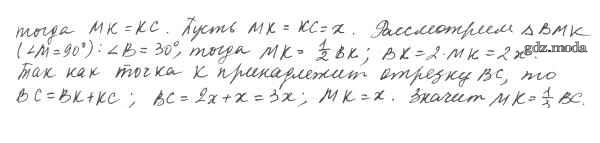 тогда MK = KC. Пусть MK = KC = x. Рассмотрим △BMK
(∠M = 90°): ∠B = 30°, тогда MK = 1/2 BK; BK = 2·MK = 2x.
gdz.moda
Так как точка K принадлежит отрезку BC, то
BC = BK + KC; BC = 2x + x = 3x; MK = x. Значит MK = 1/3 BC.